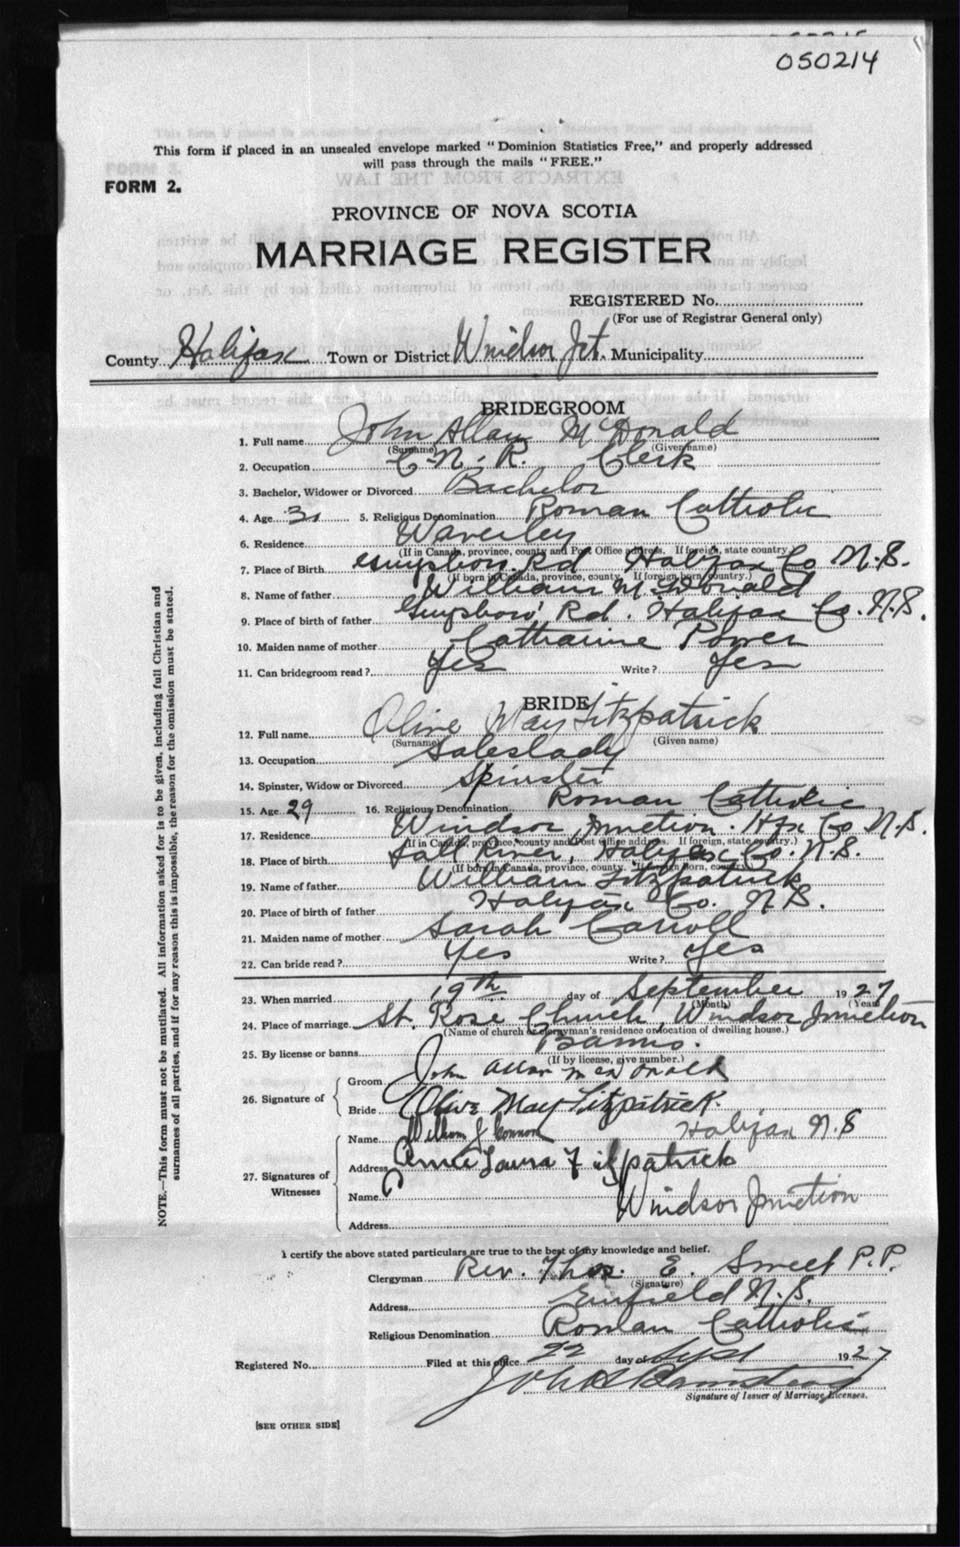 050214
This form if placed in an unsealed envelope marked "Dominion Statistics Free," and properly addressed
will pass through the mails "FREE."
FORM 2.
PROVINCE OF NOVA SCOTIA
MARRIAGE REGISTER
REGISTERED No.
(For use of Registrar General only)
County Halifax Town or District Windsor Jct. Municipality
BRIDEGROOM
1. Full name John Allan McDonald
(Surname) (Given name)
2. Occupation C.N.R. Clerk
3. Bachelor, Widower or Divorced Bachelor
4. Age 31 5. Religious Denomination Roman Catholic
6. Residence Waverley
(If in Canada, province, county and Post Office address. If foreign, state country.)
7. Place of Birth Guysboro Rd Halifax Co N.S.
(If born in Canada, province, county. If foreign born, country.)
8. Name of father William McDonald
9. Place of birth of father Guysboro' Rd. Halifax Co. N.S.
10. Maiden name of mother Catharine Power
11. Can bridegroom read? Yes Write? Yes
BRIDE
12. Full name Olive May Fitzpatrick
(Surname) (Given name)
13. Occupation Saleslady
14. Spinster, Widow or Divorced Spinster
15. Age 29 16. Religious Denomination Roman Catholic
17. Residence Windsor Junction. Hfx Co N.S.
(If in Canada, province, county and Post Office address. If foreign, state country.)
18. Place of birth Fall River, Halifax Co. N.S.
(If born in Canada, province, county. If foreign born, country.)
19. Name of father William Fitzpatrick
20. Place of birth of father Halifax Co. N.S.
21. Maiden name of mother Sarah Carroll
22. Can bride read? Yes Write? Yes
23. When married 19th day of September 1927
(Month) (Year)
24. Place of marriage St. Rose Church, Windsor Junction
(Name of church or clergyman's residence or location of dwelling house.)
25. By license or banns Banns.
(If by license, give number.)
26. Signature of
Groom John Allan McDonald
Bride Olive May Fitzpatrick.
27. Signatures of Witnesses
Name William J Connor Halifax N.S
Address Laura Fitzpatrick
Name Windsor Junction
Address
I certify the above stated particulars are true to the best of my knowledge and belief.
Clergyman Rev. Thos. E. Sweet P.P.
(Signature)
Address Enfield N.S.
Religious Denomination Roman Catholic
Registered No. Filed at this office 22 day of Sept 1927
John
Signature of Issuer of Marriage Licenses.
[SEE OTHER SIDE]
NOTE.—This form must not be mutilated. All information asked for is to be given, including full Christian and
surnames of all parties, and if for any reason this is impossible, the reason for the omission must be stated.